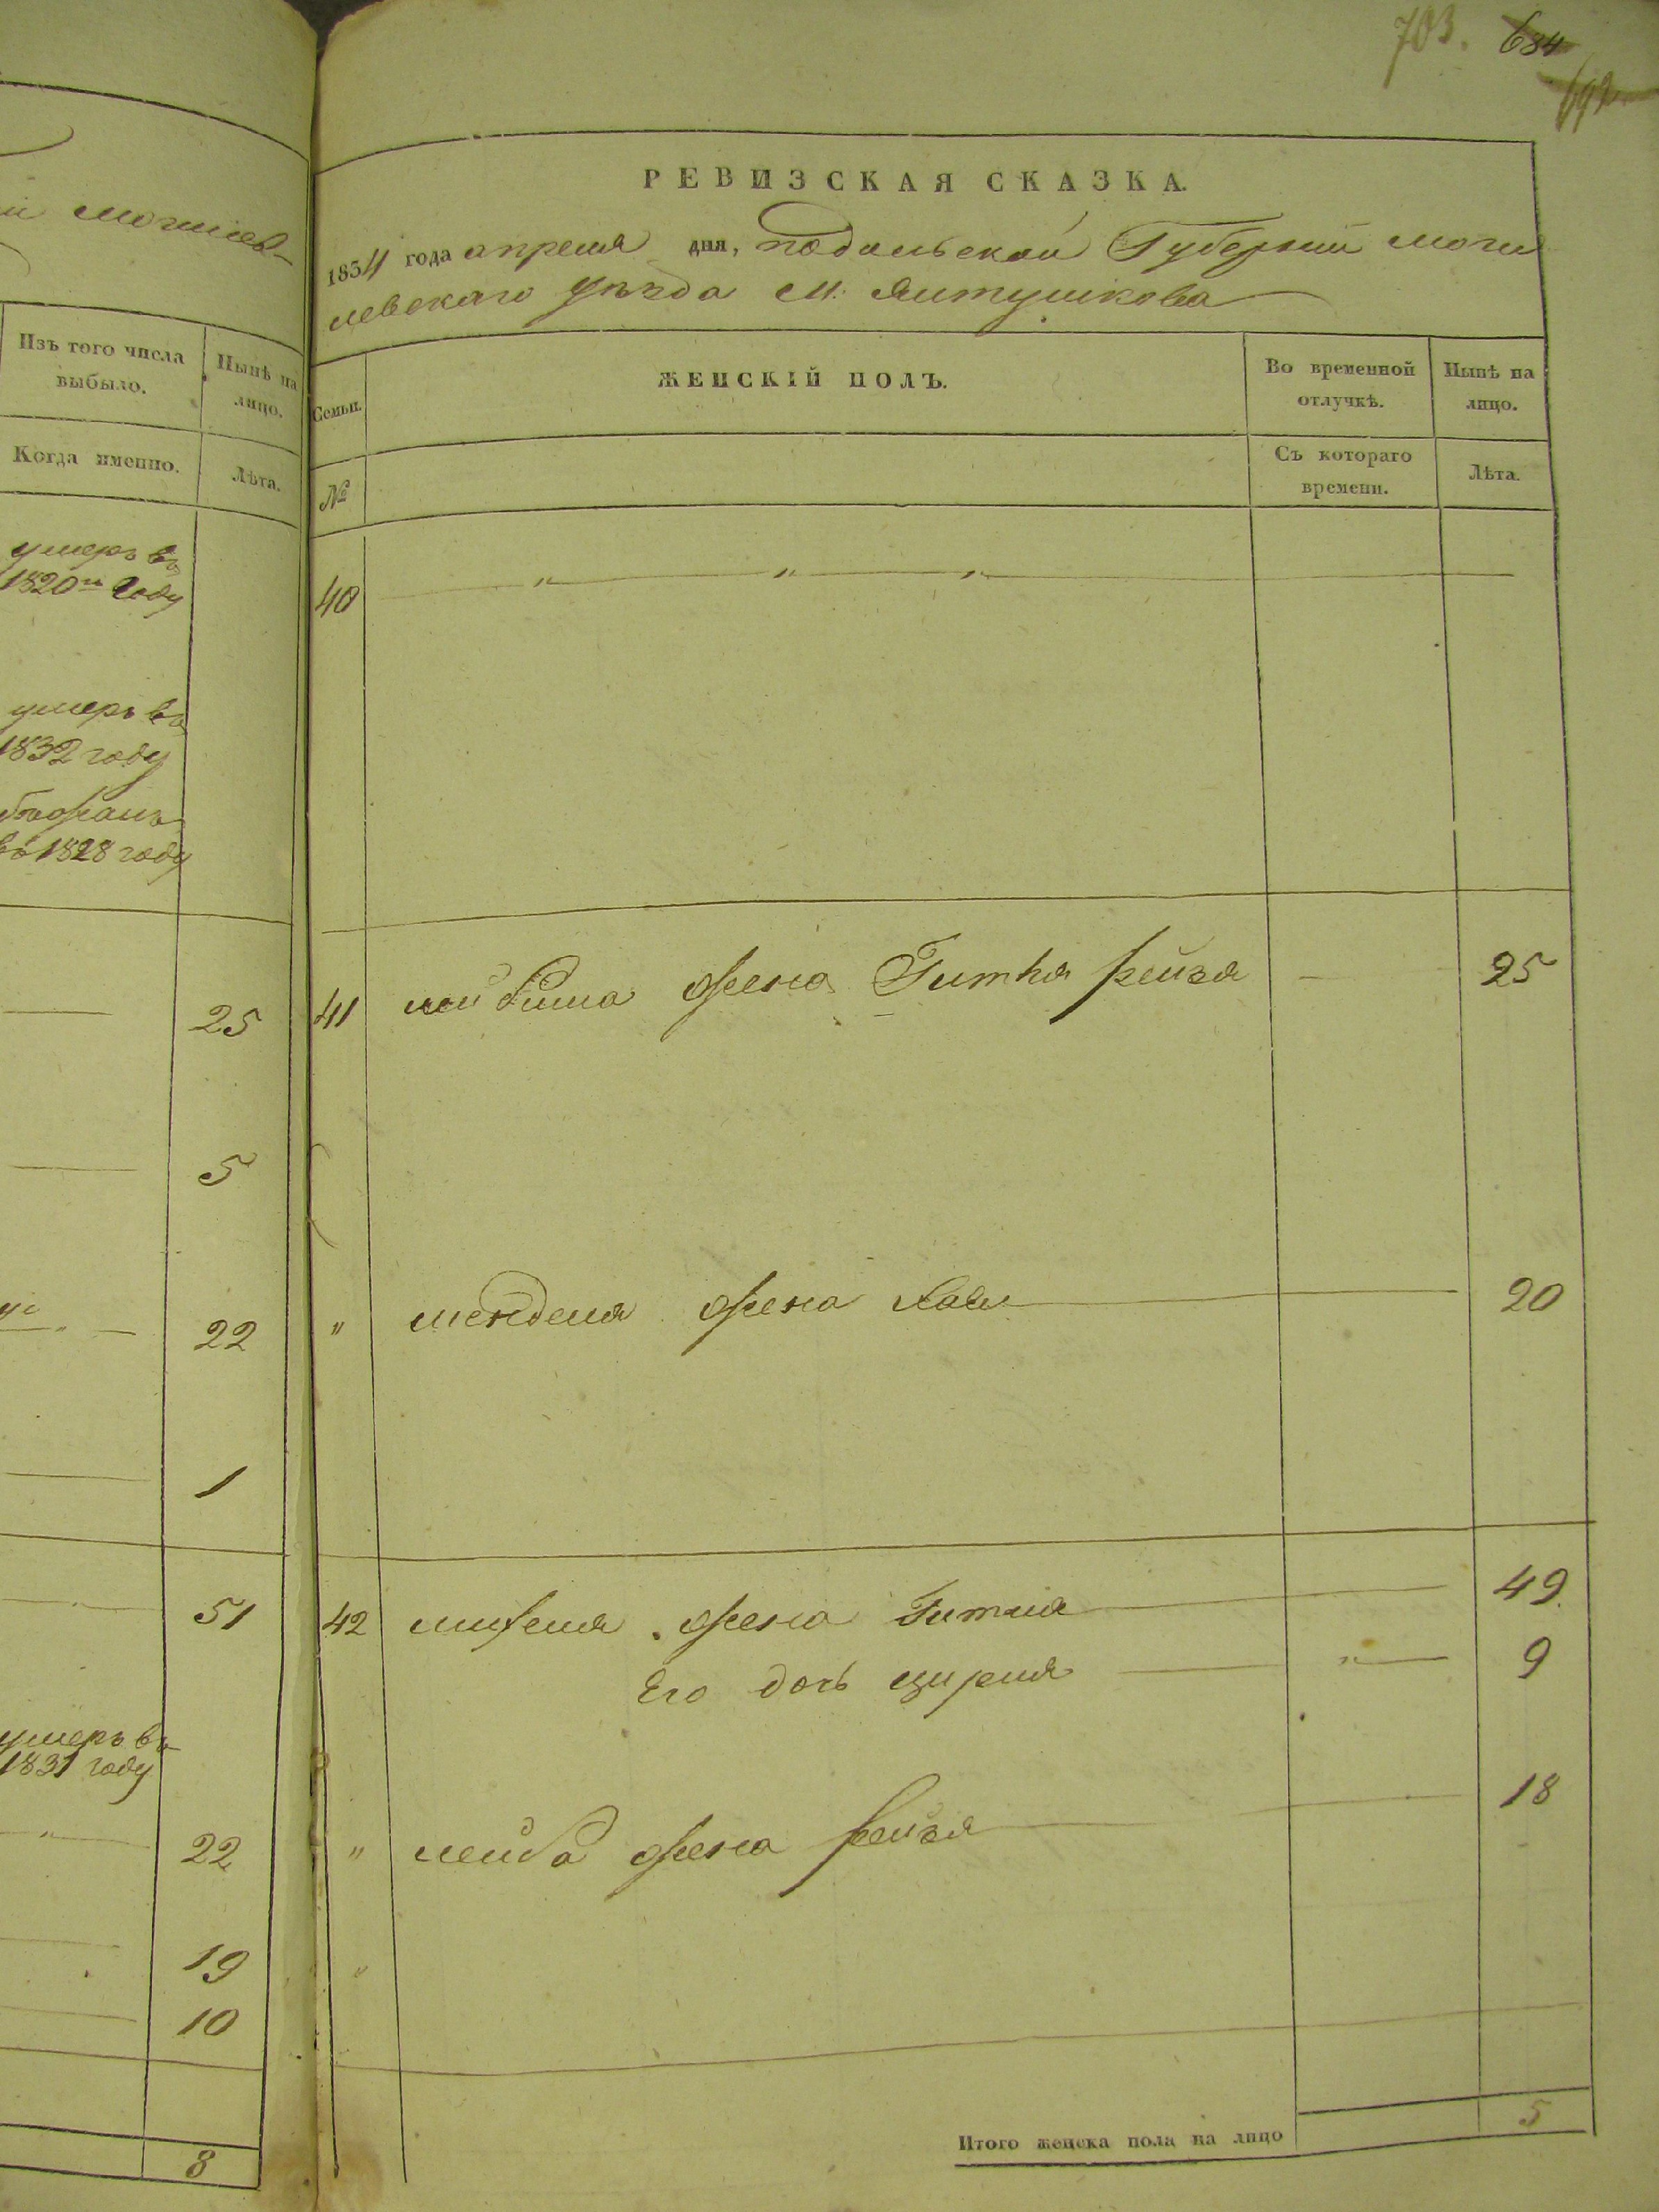 703. 684
692
могилев-
Изъ того числа
выбыло.
Нынѣ на
лицо.
Когда именно.
Лѣта.
умеръ въ
1820м году
умеръ въ
1832 году
въ 1828 году
25
5
22
1
51
умеръ въ
1831 году
22
19
10
8
РЕВИЗСКАЯ СКАЗКА.
1834 года апреля дня, подольской Губернии моги
левскаго уѣзда М. Ялтушкова
Семьи.
ЖЕНСКІЙ ПОЛЪ.
Во временной
отлучкѣ.
Нынѣ на
лицо.
№
Съ котораго
времени.
Лѣта.
40 " " "
41 жена Гитля рейзя - 25
" менделя жена хая 20
42 жена Гитля 49
Его дочь цирля " 9
" лейба жена рейзя 18
"
Итого женска пола на лицо 5